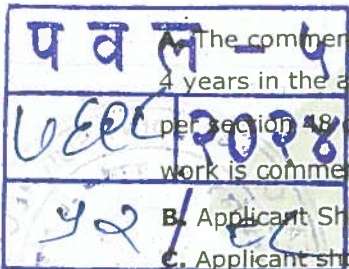 प व ल - ५
A. The commen
4 years in the a
२०२४
per section 48
work is comme
B. Applicant Sh
C. Applicant sh